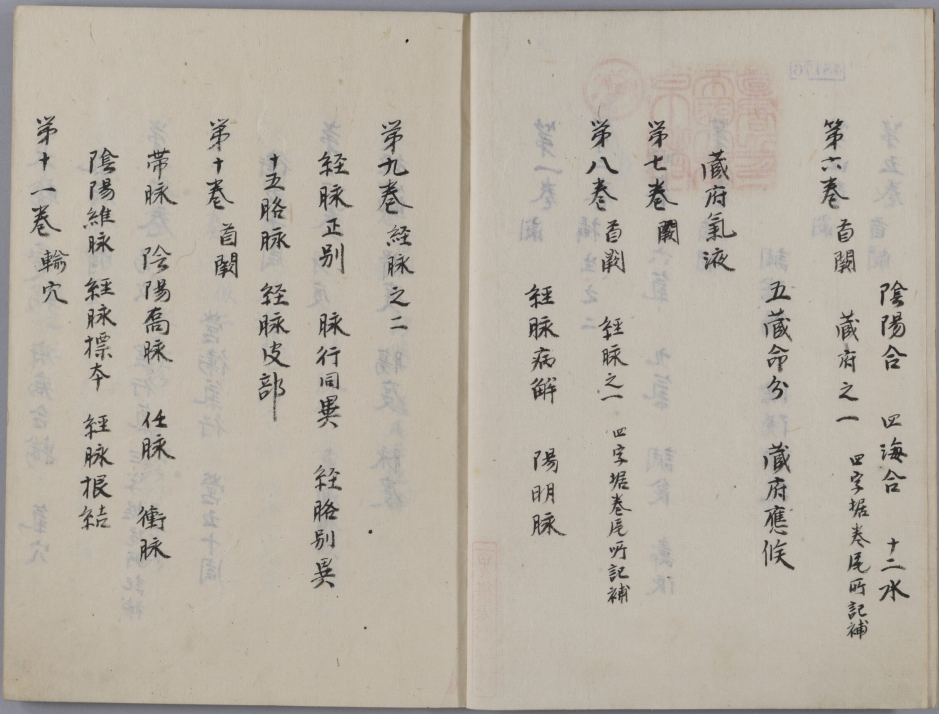 陰陽合 四海合 十二水
第六巻 首闕 蔵府之一 四字据巻尾所記補
五蔵命分 蔵府應候
蔵府氣液
第七巻 闕
第八巻 首闕 経脉之一 四字据巻尾所記補
経脉病解 陽明脉
第九巻 経脉之二
経脉正别 脉行同異 経胳别異
十五胳脉 経脉皮部
第十巻 首闕
帯脉 陰陽喬脉 任脉 衝脉
陰陽維脉 經脉標本 經脉根結
第十一巻 輸穴